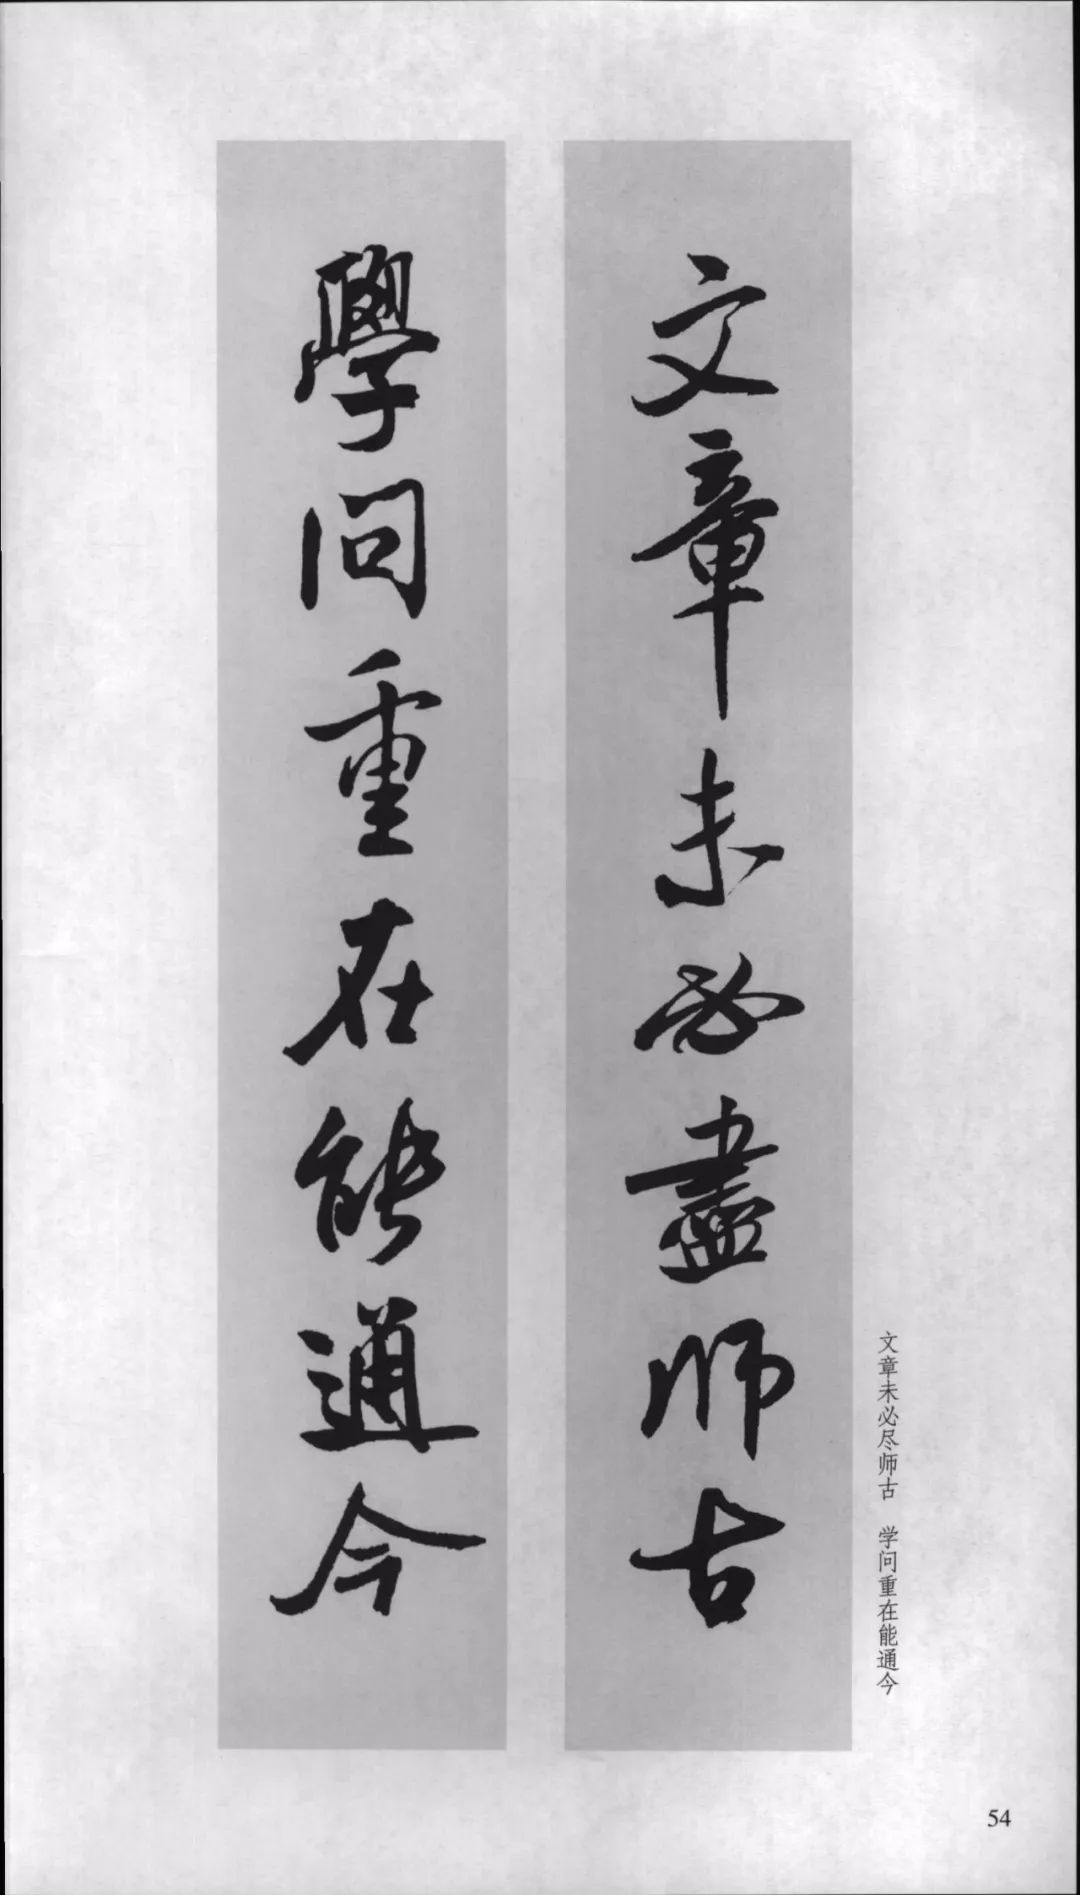 文章未必盡师古
學问重在能通今
文章未必尽师古 学问重在能通今
54